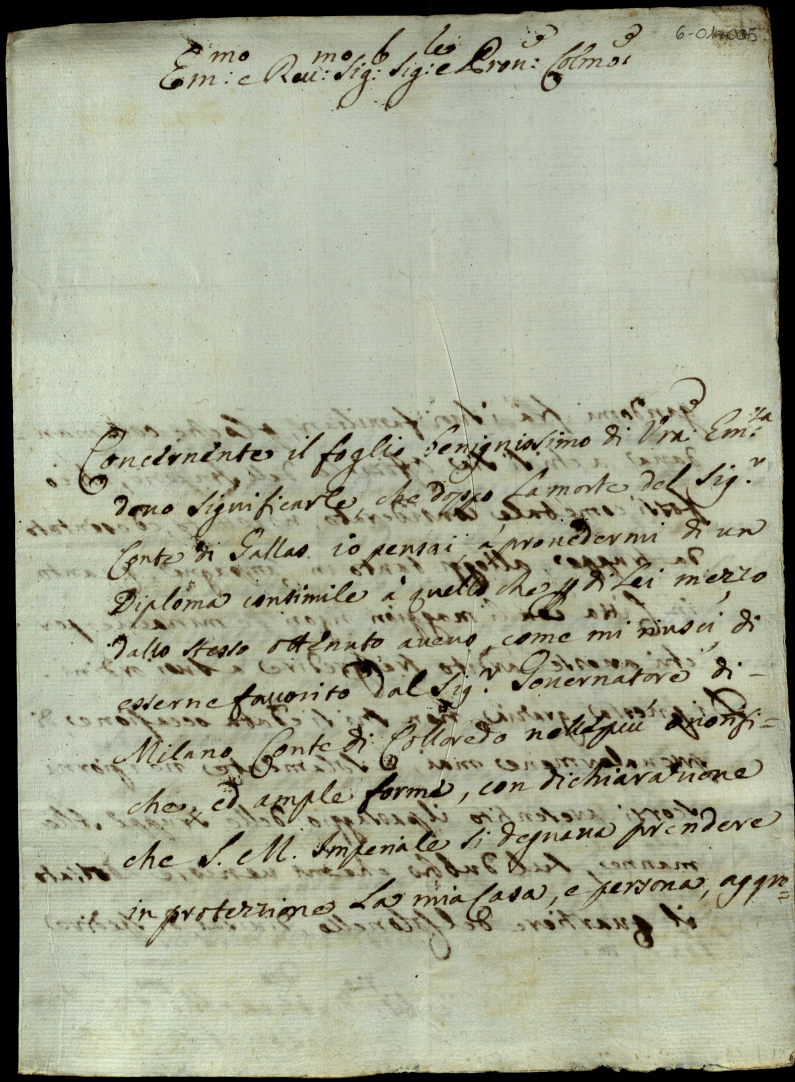 6-01-005
Em:mo e Reu:mo Sig: Sig:le e Pron:e Colmo:
Concernente il foglio benignissimo di Vra Em:za
deuo significarle, che doppo la morte del Sig.r
Conte di Gallas io pensai à prouedermi di un
Diploma consimile à quello che p di Lei mezzo
dallo stesso ottenuto aueuo, come mi riuscì, di
esserne fauorito dal Sig.r Gouernatore di-
Milano Conte di Colloredo nelle più onorifi=
che, ed ample forme, con dichiarazione
che S. M. Imperiale si degnaua prendere
in protezzione la mia Casa, e persona, aggre=